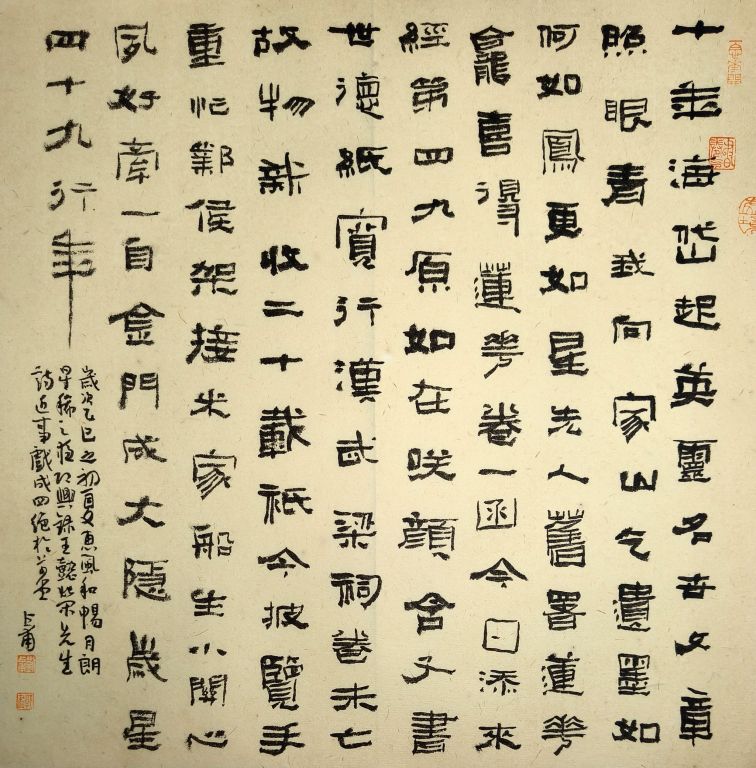 十年海岱起英靈名世文章
照眼青或向家山乞遺墨如
何如鳳更如星先人舊署蓮花
龕喜得蓮花卷一函今日添來
經第四九原如在咲顏含子書
世德紙賓行漢武梁祠卷未亡
故物新收二十載祇今披覽手
重忙鄴侯架接米家船生小關心
夙好牽一自金門成大隱歲星
四十九行年
歲次乙巳之初夏惠風和暢月朗
星稀之夜乃興錄王懿榮先生
詩近事戲成四絕於